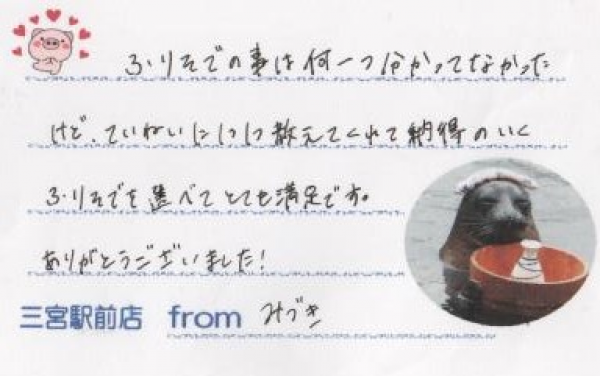 ふりそでの事は何一つ分かってなかった
けど、ていねいに1つ1つ教えてくれて納得のいく
ふりそでを選べてとても満足です。
ありがとうございました!
三宮駅前店 from みづき